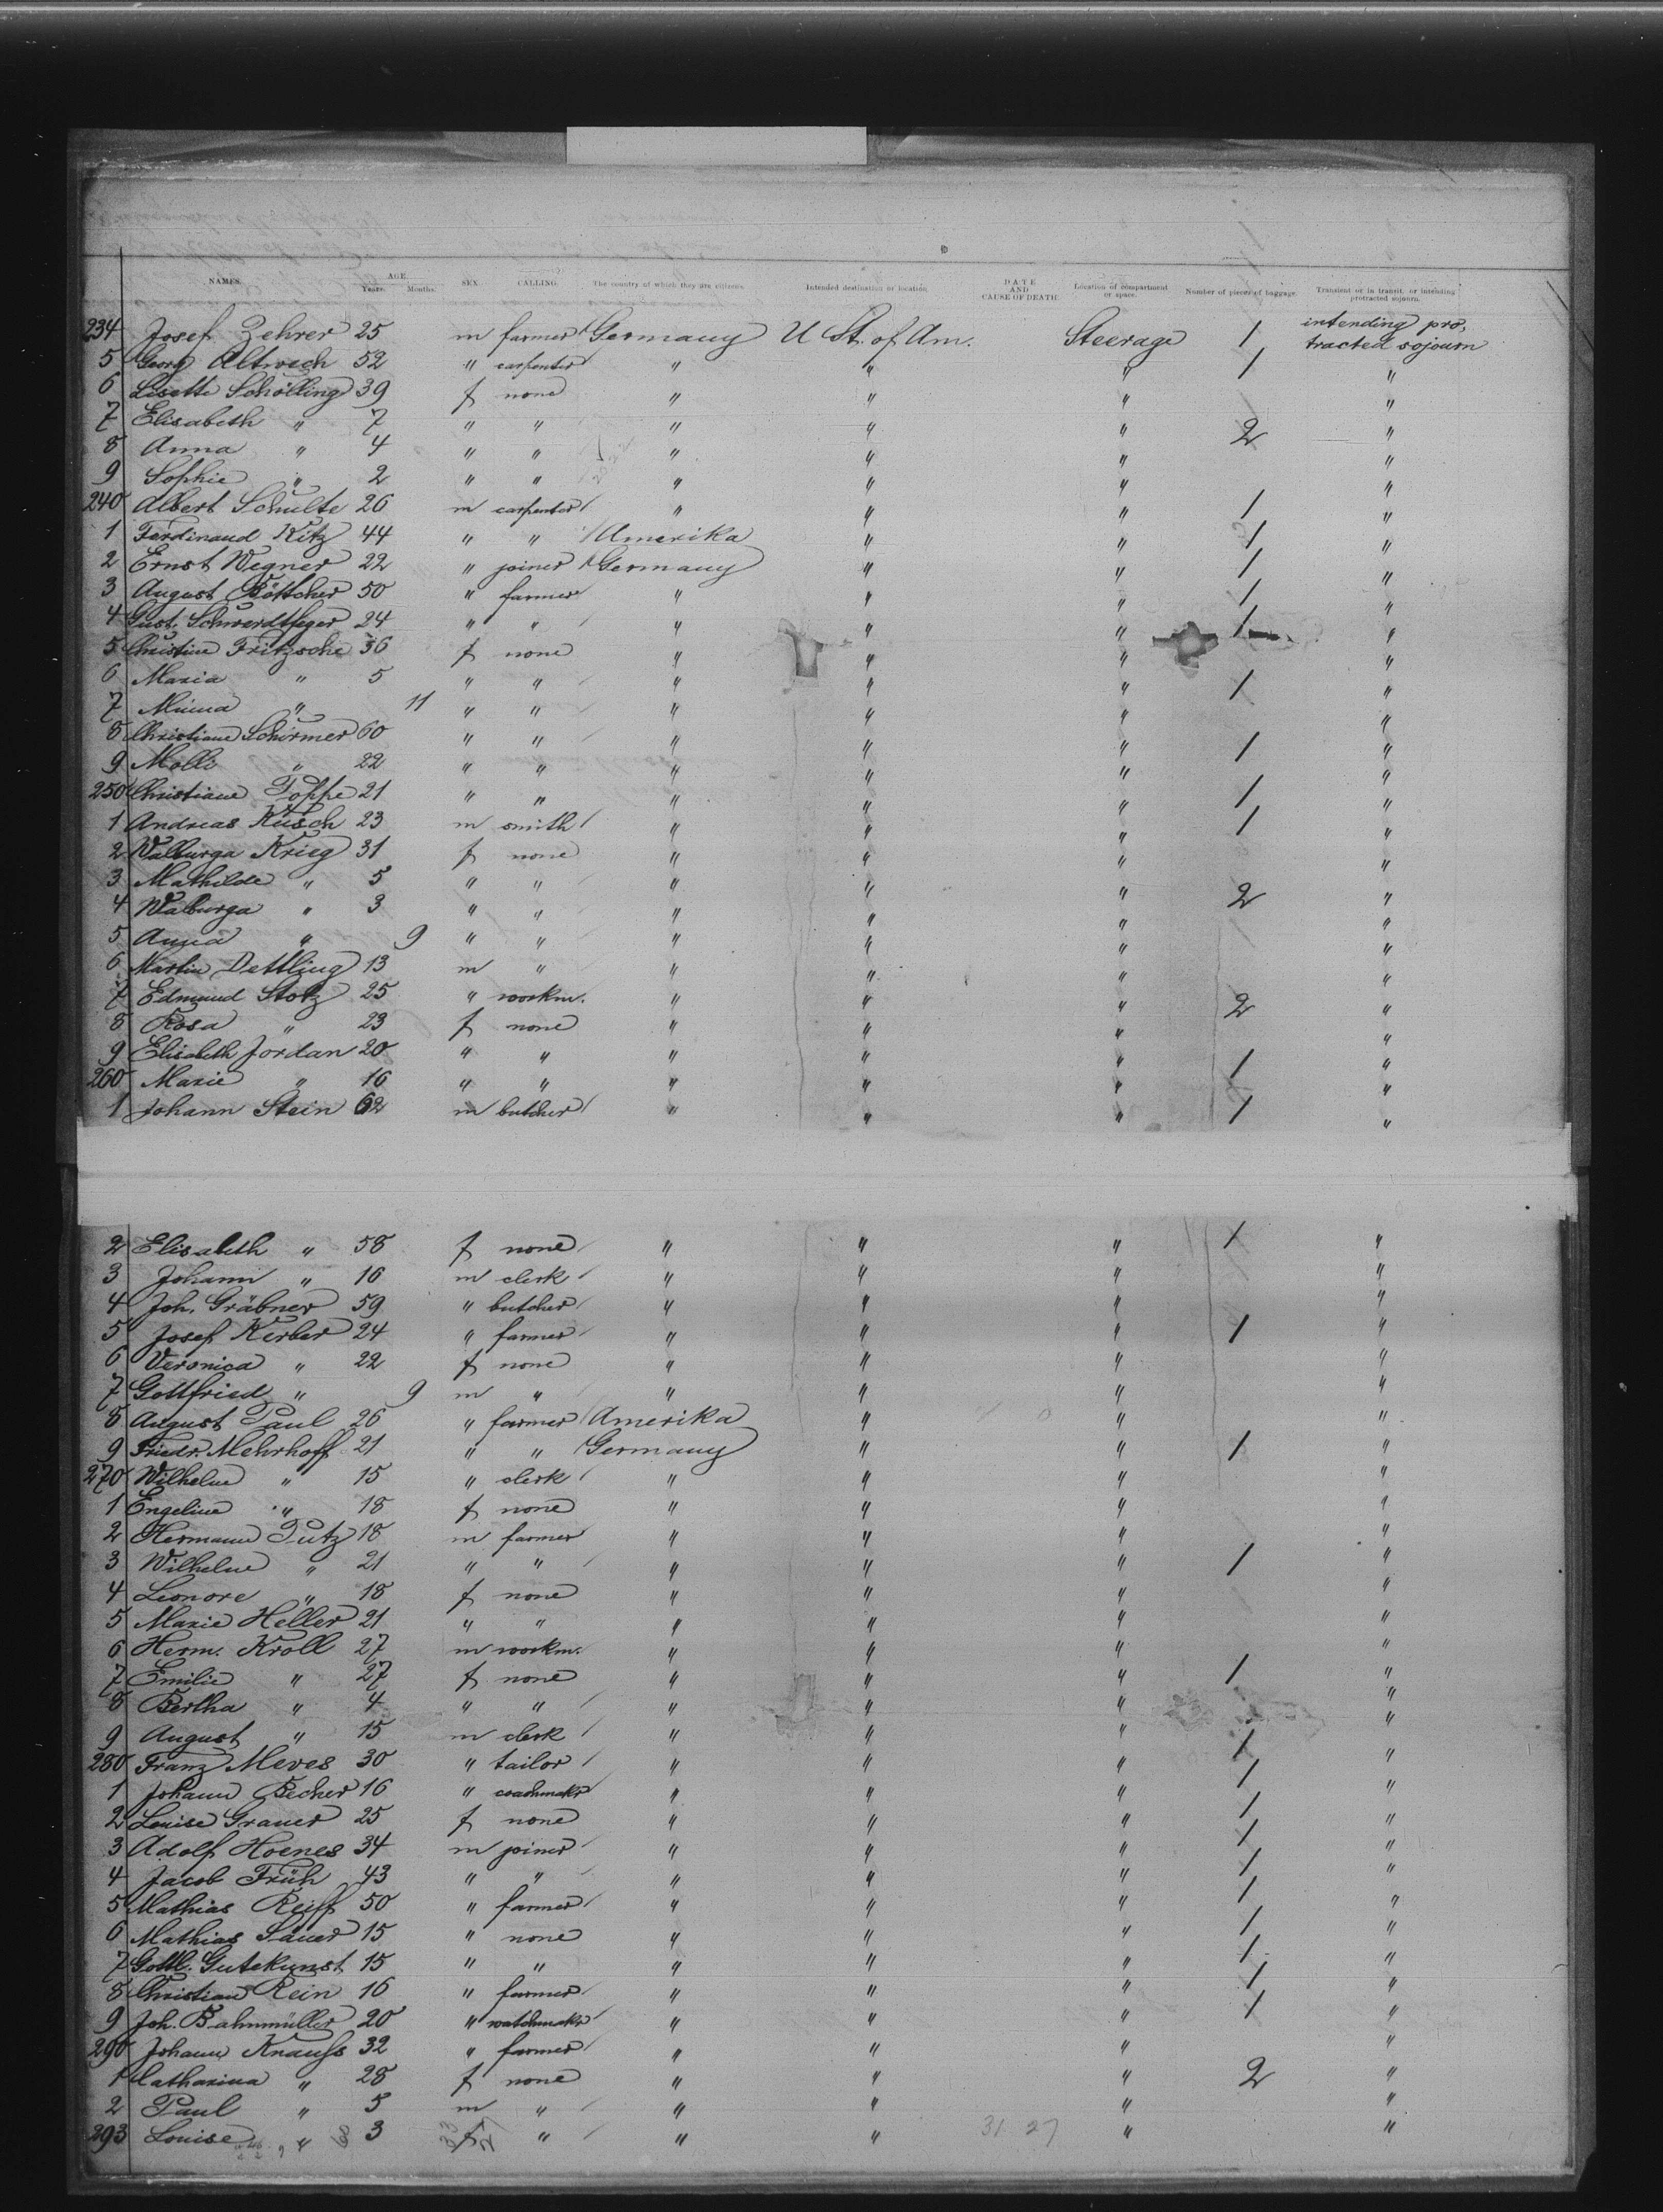 NAMES. AGE. Years. Months. SEX. CALLING. The country of which they are citizens. Intended destination or location. DATE AND CAUSE OF DEATH. Location of compartment or space. Number of pieces of baggage. Transient or in transit, or intending protracted sojourn.
234 Josef Zehrer 25 m farmer Germany U St. of Am. Steerage 1 intending protracted sojourn
5 Georg 52 " carpenter " " " 1 "
6 Lisette Schölling 39 f none " " " "
7 Elisabeth " 7 " " " " " 2 "
8 Anna " 4 " " " " " "
9 Sophie " 2 " " " " " "
240 Albert Schulte 26 m carpenter " " " 1 "
1 Ferdinand Kitz 44 " " Amerika " " 1 "
2 Ernst Wegner 22 " joiner Germany " " 1 "
3 August Böttcher 50 " farmer " " " 1 "
4 Gust. Schwerdtfeger 24 " " " " " 1 "
5 Christine Fritzsche 36 f none " " " "
6 Maria " 5 " " " " " 1 "
7 Minna " 11 " " " " " "
8 Christiane Schirmer 60 " " " " " 1 "
9 Molli " 22 " " " " " "
250 Christiane Toppe 21 " " " " " 1 "
1 Andreas Küsch 23 m smith " " " 1 "
2 Walburga Krieg 31 f none " " " "
3 Mathilde " 5 " " " " " 2 "
4 Walburga " 3 " " " " " "
5 Anna " 9 " " " " " "
6 Martin Dettling 13 m " " " " "
7 Edmund Stolz 25 " workm. " " " 2 "
8 Rosa " 23 f none " " " "
9 Elisabeth Jordan 20 " " " " " 1 "
260 Marie " 16 " " " " " "
1 Johann Stein 62 m butcher " " " 1 "
2 Elisabeth " 58 f none " " " 1 "
3 Johann " 16 m clerk " " " "
4 Joh. Gräbner 59 " butcher " " " "
5 Josef Kerber 24 " farmer " " " 1 "
6 Veronica " 22 f none " " " "
7 Gottfried " 9 m " " " " "
8 August Paul 26 " farmer Amerika " " "
9 Friedr. Mehrhoff 21 " " Germany " " 1 "
270 Wilhelm " 15 " clerk " " " "
1 Engeline " 18 f none " " " "
2 Hermann Putz 18 m farmer " " " "
3 Wilhelm " 21 " " " " " 1 "
4 Leonore " 18 f none " " " "
5 Marie Heller 21 " " " " " "
6 Herm. Kroll 27 m workm. " " " "
7 Emilie " 27 f none " " " 1 "
8 Bertha " 4 " " " " " "
9 August " 15 m clerk " " " 1
280 Franz Meves 30 " tailor " " " 1 "
1 Johann Becher 16 " coachmakr " " " 1 "
2 Louise Grauer 25 f none " " " 1 "
3 Adolf Hoenes 34 m joiner " " " 1 "
4 Jacob Früh 43 " " " " " 1 "
5 Mathias Reiff 50 " farmer " " " 1 "
6 Mathias Sauer 15 " none " " " 1 "
7 Gottl. Gutekunst 15 " " " " " 1 "
8 Christian Rein 16 " farmer " " " 1 "
9 Joh. Bahnmüller 20 " watchmakr " " " 1 "
290 Johann Knauss 32 " farmer " " " "
1 Catharina " 28 f none " " " 2 "
2 Paul " 5 m " " " " "
293 Louise " 3 f " " " 31 27 " "